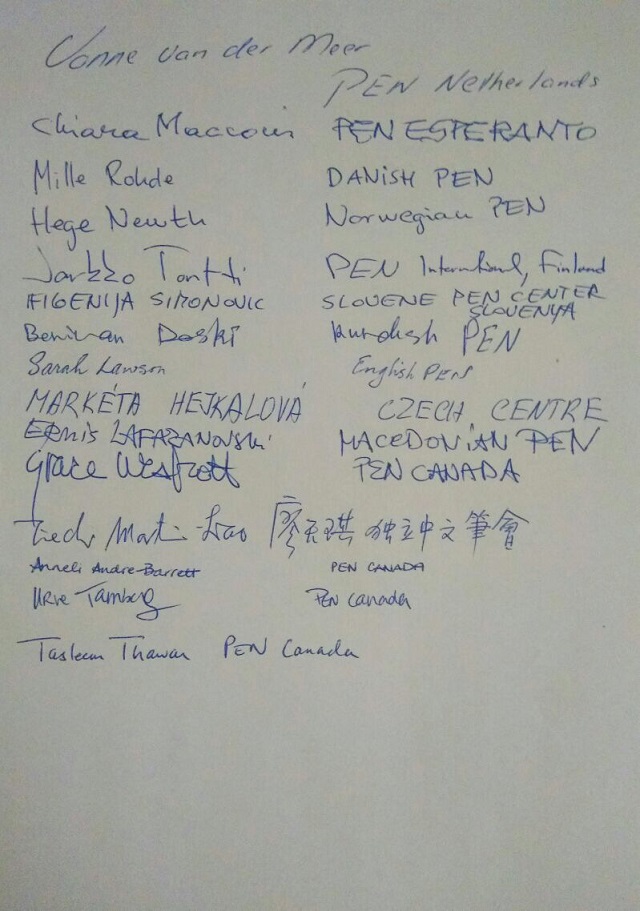 Vonne van der Meer
PEN Netherlands
Chiara Macconi PEN ESPERANTO
Mille Rohde DANISH PEN
Hege Newth Norwegian PEN
Jarkko Tontti PEN International, Finland
IFIGENIJA SIMONOVIC SLOVENE PEN CENTER
SLOVENYA
Berivan Doski Kurdish PEN
Sarah Lawson English PEN
MARKÉTA HEJKALOVÁ CZECH CENTRE
ERMIS LAFAZANOVSKI MACEDONIAN PEN
Grace PEN CANADA
Martin Liao 廖天琪 独立中文筆會
Anneli Andre-Barrett PEN CANADA
Urve Tamberg PEN Canada
Tasleem Thawar PEN Canada